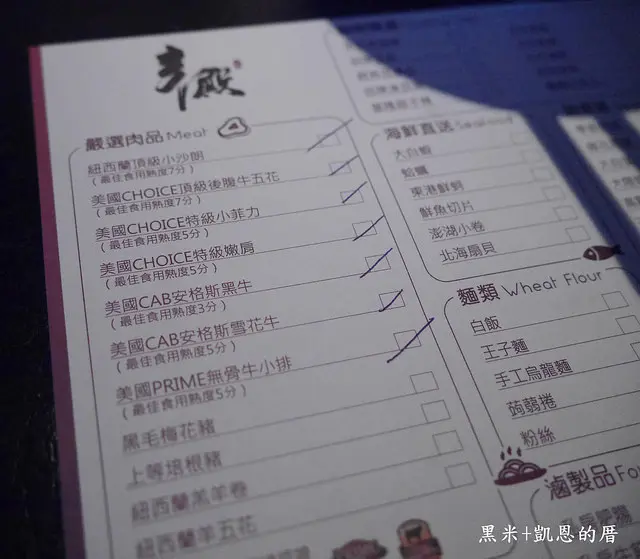 嚴選肉品 Meat
紐西蘭頂級小沙朗
(最佳食用熟度7分)
美國CHOICE頂級後腹牛五花
(最佳食用熟度7分)
美國CHOICE特級小菲力
(最佳食用熟度5分)
美國CHOICE特級嫩肩
(最佳食用熟度5分)
美國CAB安格斯黑牛
(最佳食用熟度3分)
美國CAB安格斯雪花牛
(最佳食用熟度5分)
美國PRIME無骨牛小排
(最佳食用熟度5分)
黑毛梅花豬
上等培根豬
紐西蘭羔羊卷
紐西蘭羊五花
海鮮直送 Seafood
大白蝦
蛤蠣
東港鮮蚵
鮮魚切片
澎湖小卷
北海扇貝
麵類 Wheat Flour
白飯
王子麵
手工烏龍麵
蒟蒻捲
粉絲
滷製品
黑米+凱恩的厝